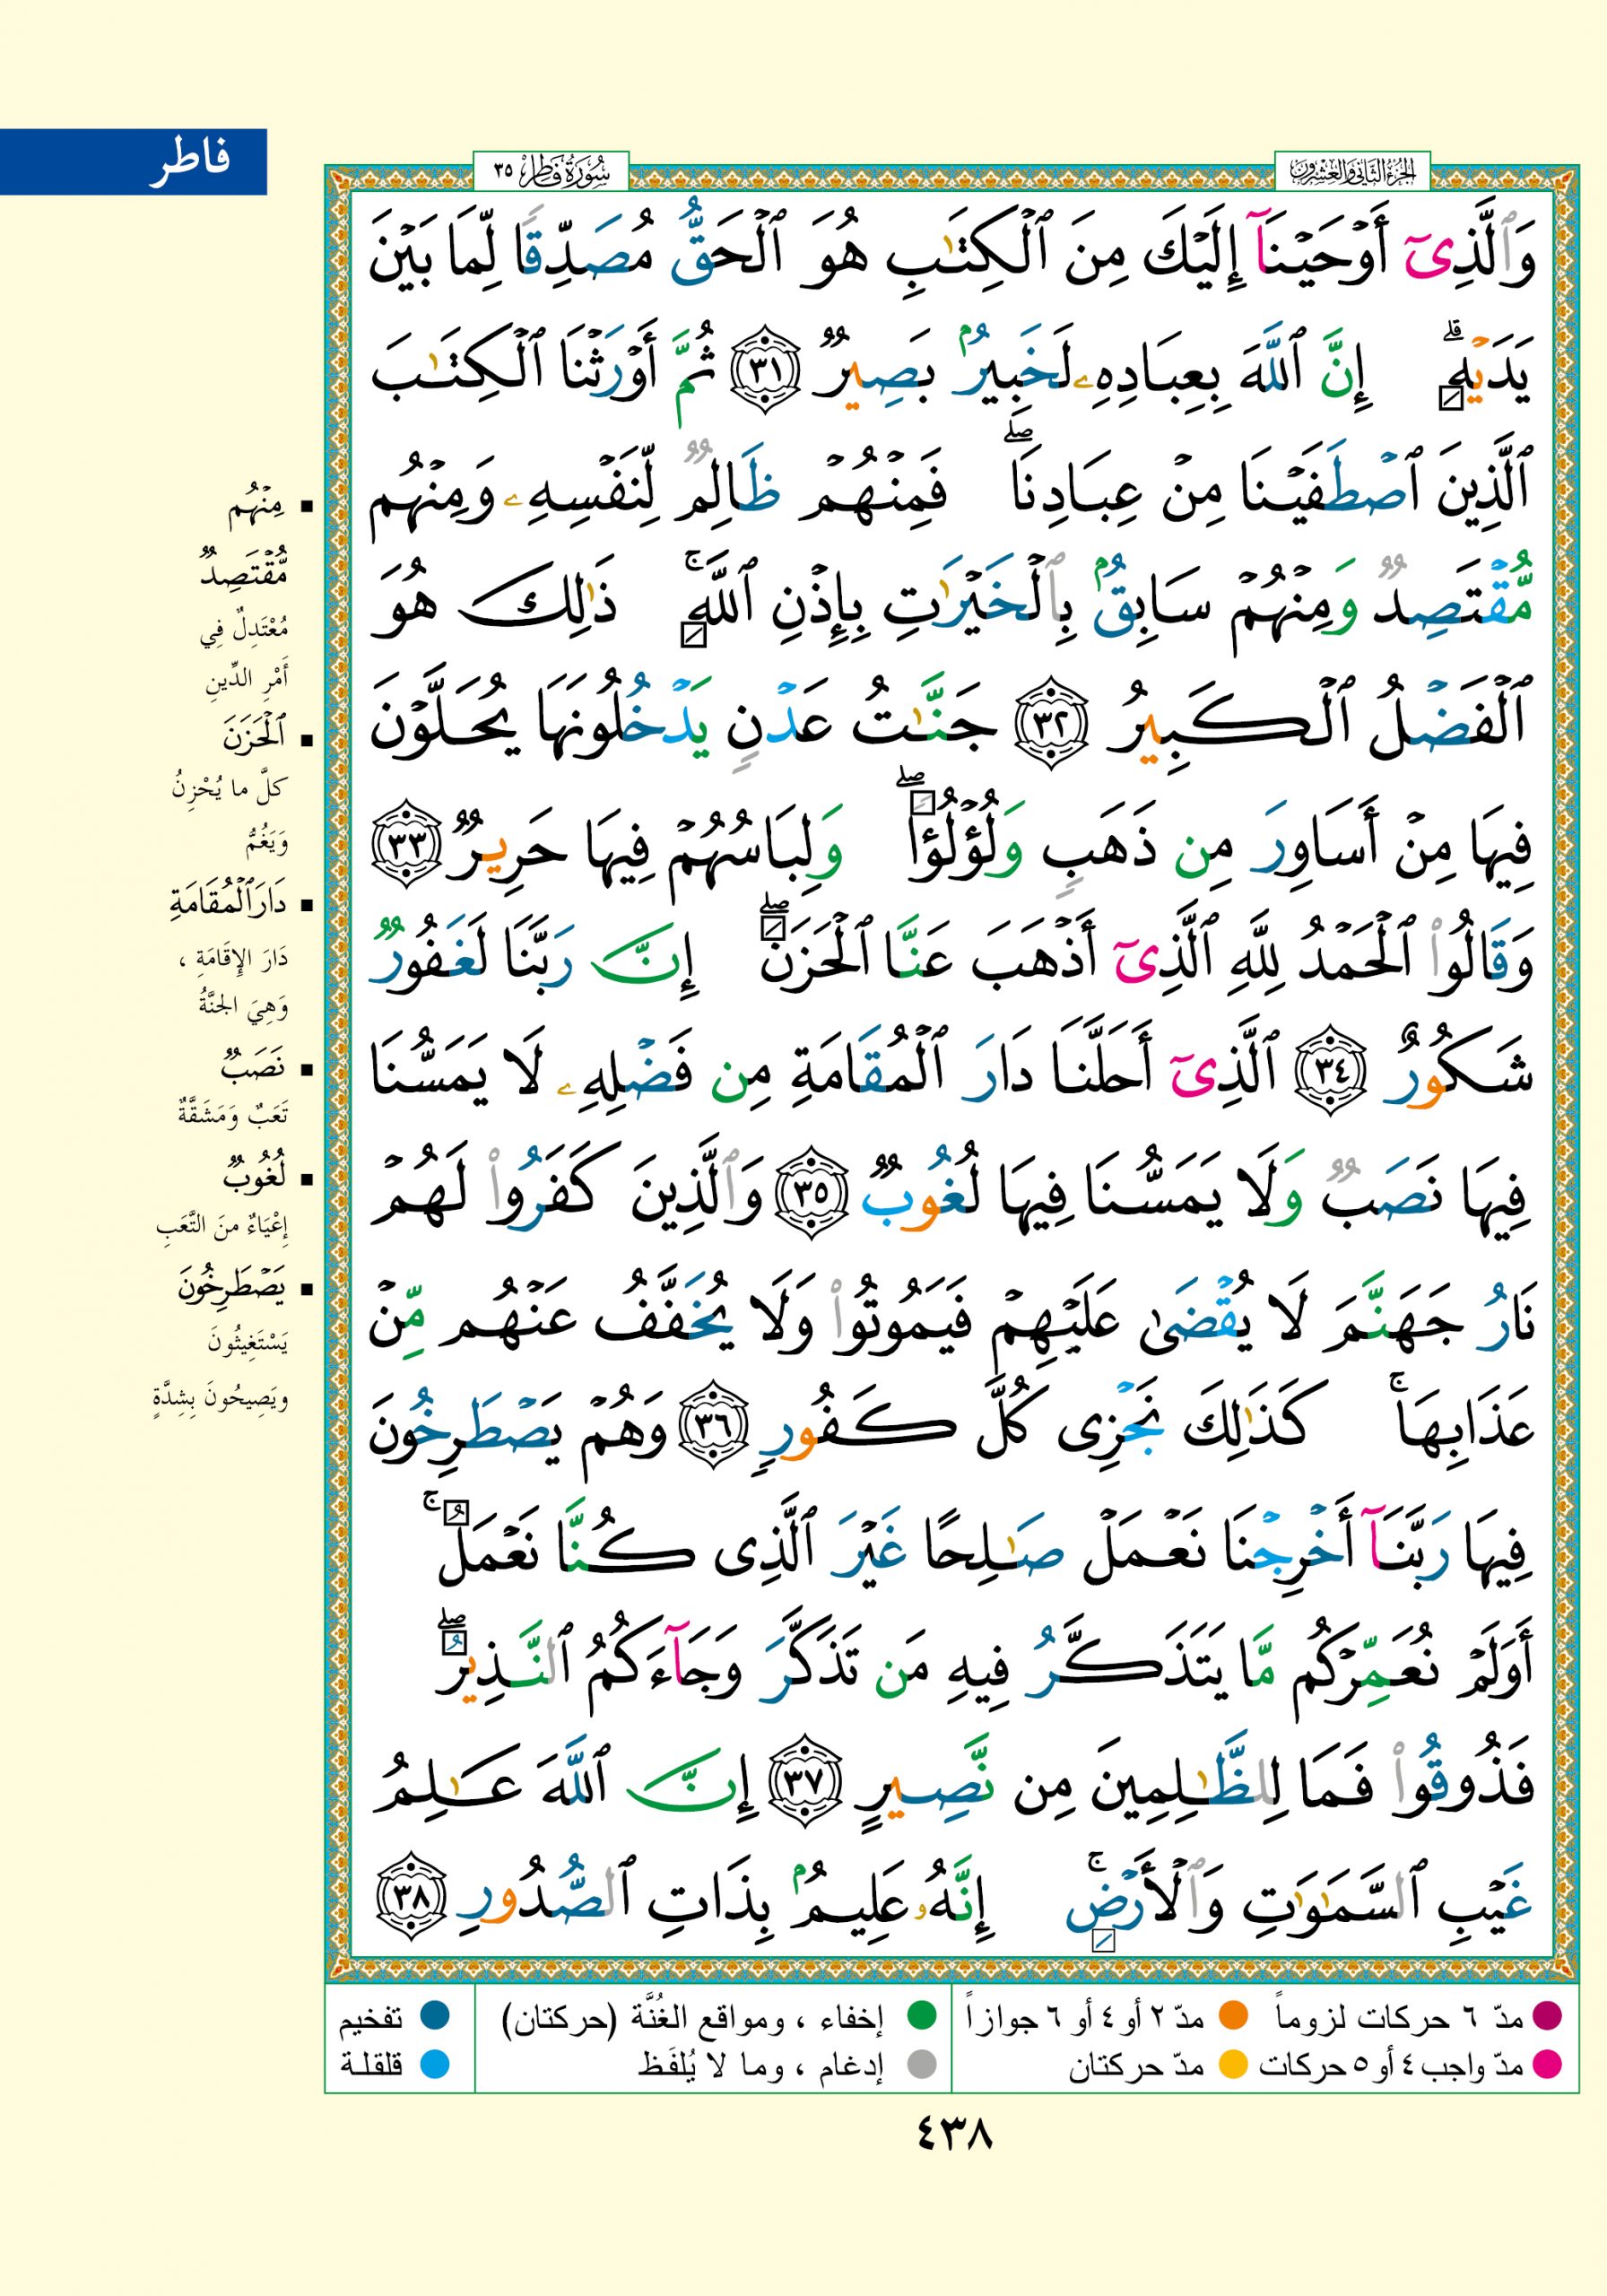 فاطر
الجزء الثاني والعشرون
سورة فاطر ٣٥
وَٱلَّذِىٓ أَوْحَيْنَآ إِلَيْكَ مِنَ ٱلْكِتَـٰبِ هُوَ ٱلْحَقُّ مُصَدِّقًا لِّمَا بَيْنَ
يَدَيْهِ ۗ إِنَّ ٱللَّهَ بِعِبَادِهِۦ لَخَبِيرٌۢ بَصِيرٌ ٣١ ثُمَّ أَوْرَثْنَا ٱلْكِتَـٰبَ
ٱلَّذِينَ ٱصْطَفَيْنَا مِنْ عِبَادِنَا ۖ فَمِنْهُمْ ظَالِمٌ لِّنَفْسِهِۦ وَمِنْهُم
مُّقْتَصِدٌ وَمِنْهُمْ سَابِقٌۢ بِٱلْخَيْرَٰتِ بِإِذْنِ ٱللَّهِ ۚ ذَٰلِكَ هُوَ
ٱلْفَضْلُ ٱلْكَبِيرُ ٣٢ جَنَّـٰتُ عَدْنٍ يَدْخُلُونَهَا يُحَلَّوْنَ
فِيهَا مِنْ أَسَاوِرَ مِن ذَهَبٍ وَلُؤْلُؤًا ۖ وَلِبَاسُهُمْ فِيهَا حَرِيرٌ ٣٣
وَقَالُوا۟ ٱلْحَمْدُ لِلَّهِ ٱلَّذِىٓ أَذْهَبَ عَنَّا ٱلْحَزَنَ ۖ إِنَّ رَبَّنَا لَغَفُورٌ
شَكُورٌ ٣٤ ٱلَّذِىٓ أَحَلَّنَا دَارَ ٱلْمُقَامَةِ مِن فَضْلِهِۦ لَا يَمَسُّنَا
فِيهَا نَصَبٌ وَلَا يَمَسُّنَا فِيهَا لُغُوبٌ ٣٥ وَٱلَّذِينَ كَفَرُوا۟ لَهُمْ
نَارُ جَهَنَّمَ لَا يُقْضَىٰ عَلَيْهِمْ فَيَمُوتُوا۟ وَلَا يُخَفَّفُ عَنْهُم مِّنْ
عَذَابِهَا ۚ كَذَٰلِكَ نَجْزِى كُلَّ كَفُورٍ ٣٦ وَهُمْ يَصْطَرِخُونَ
فِيهَا رَبَّنَآ أَخْرِجْنَا نَعْمَلْ صَـٰلِحًا غَيْرَ ٱلَّذِى كُنَّا نَعْمَلُ ۚ
أَوَلَمْ نُعَمِّرْكُم مَّا يَتَذَكَّرُ فِيهِ مَن تَذَكَّرَ وَجَآءَكُمُ ٱلنَّذِيرُ ۖ
فَذُوقُوا۟ فَمَا لِلظَّـٰلِمِينَ مِن نَّصِيرٍ ٣٧ إِنَّ ٱللَّهَ عَـٰلِمُ
غَيْبِ ٱلسَّمَـٰوَٰتِ وَٱلْأَرْضِ ۚ إِنَّهُۥ عَلِيمٌۢ بِذَاتِ ٱلصُّدُورِ ٣٨
▪ مِنْهُم
مُّقْتَصِدٌ
مُعْتَدِلٌ فِي
أَمْرِ الدِّينِ
▪ ٱلْحَزَنَ
كلَّ ما يُحْزِنُ
وَيَغُمُّ
▪ دَارَ ٱلْمُقَامَةِ
دَارَ الإِقَامَةِ ،
وَهِيَ الجنَّةُ
▪ نَصَبٌ
تَعَبٌ وَمَشَقَّةٌ
▪ لُغُوبٌ
إِعْيَاءٌ منَ التَّعَبِ
▪ يَصْطَرِخُونَ
يَسْتَغِيثُونَ
ويَصِيحُونَ بِشِدَّةٍ
مدّ ٦ حركات لزوماً ● مدّ ٢ أو ٤ أو ٦ جوازاً ● إخفاء ، ومواقع الغُنَّة (حركتان) ● تفخيم
مدّ واجب ٤ أو ٥ حركات ● مدّ حركتان ● إدغام ، وما لا يُلفَظ ● قلقلة
٤٣٨